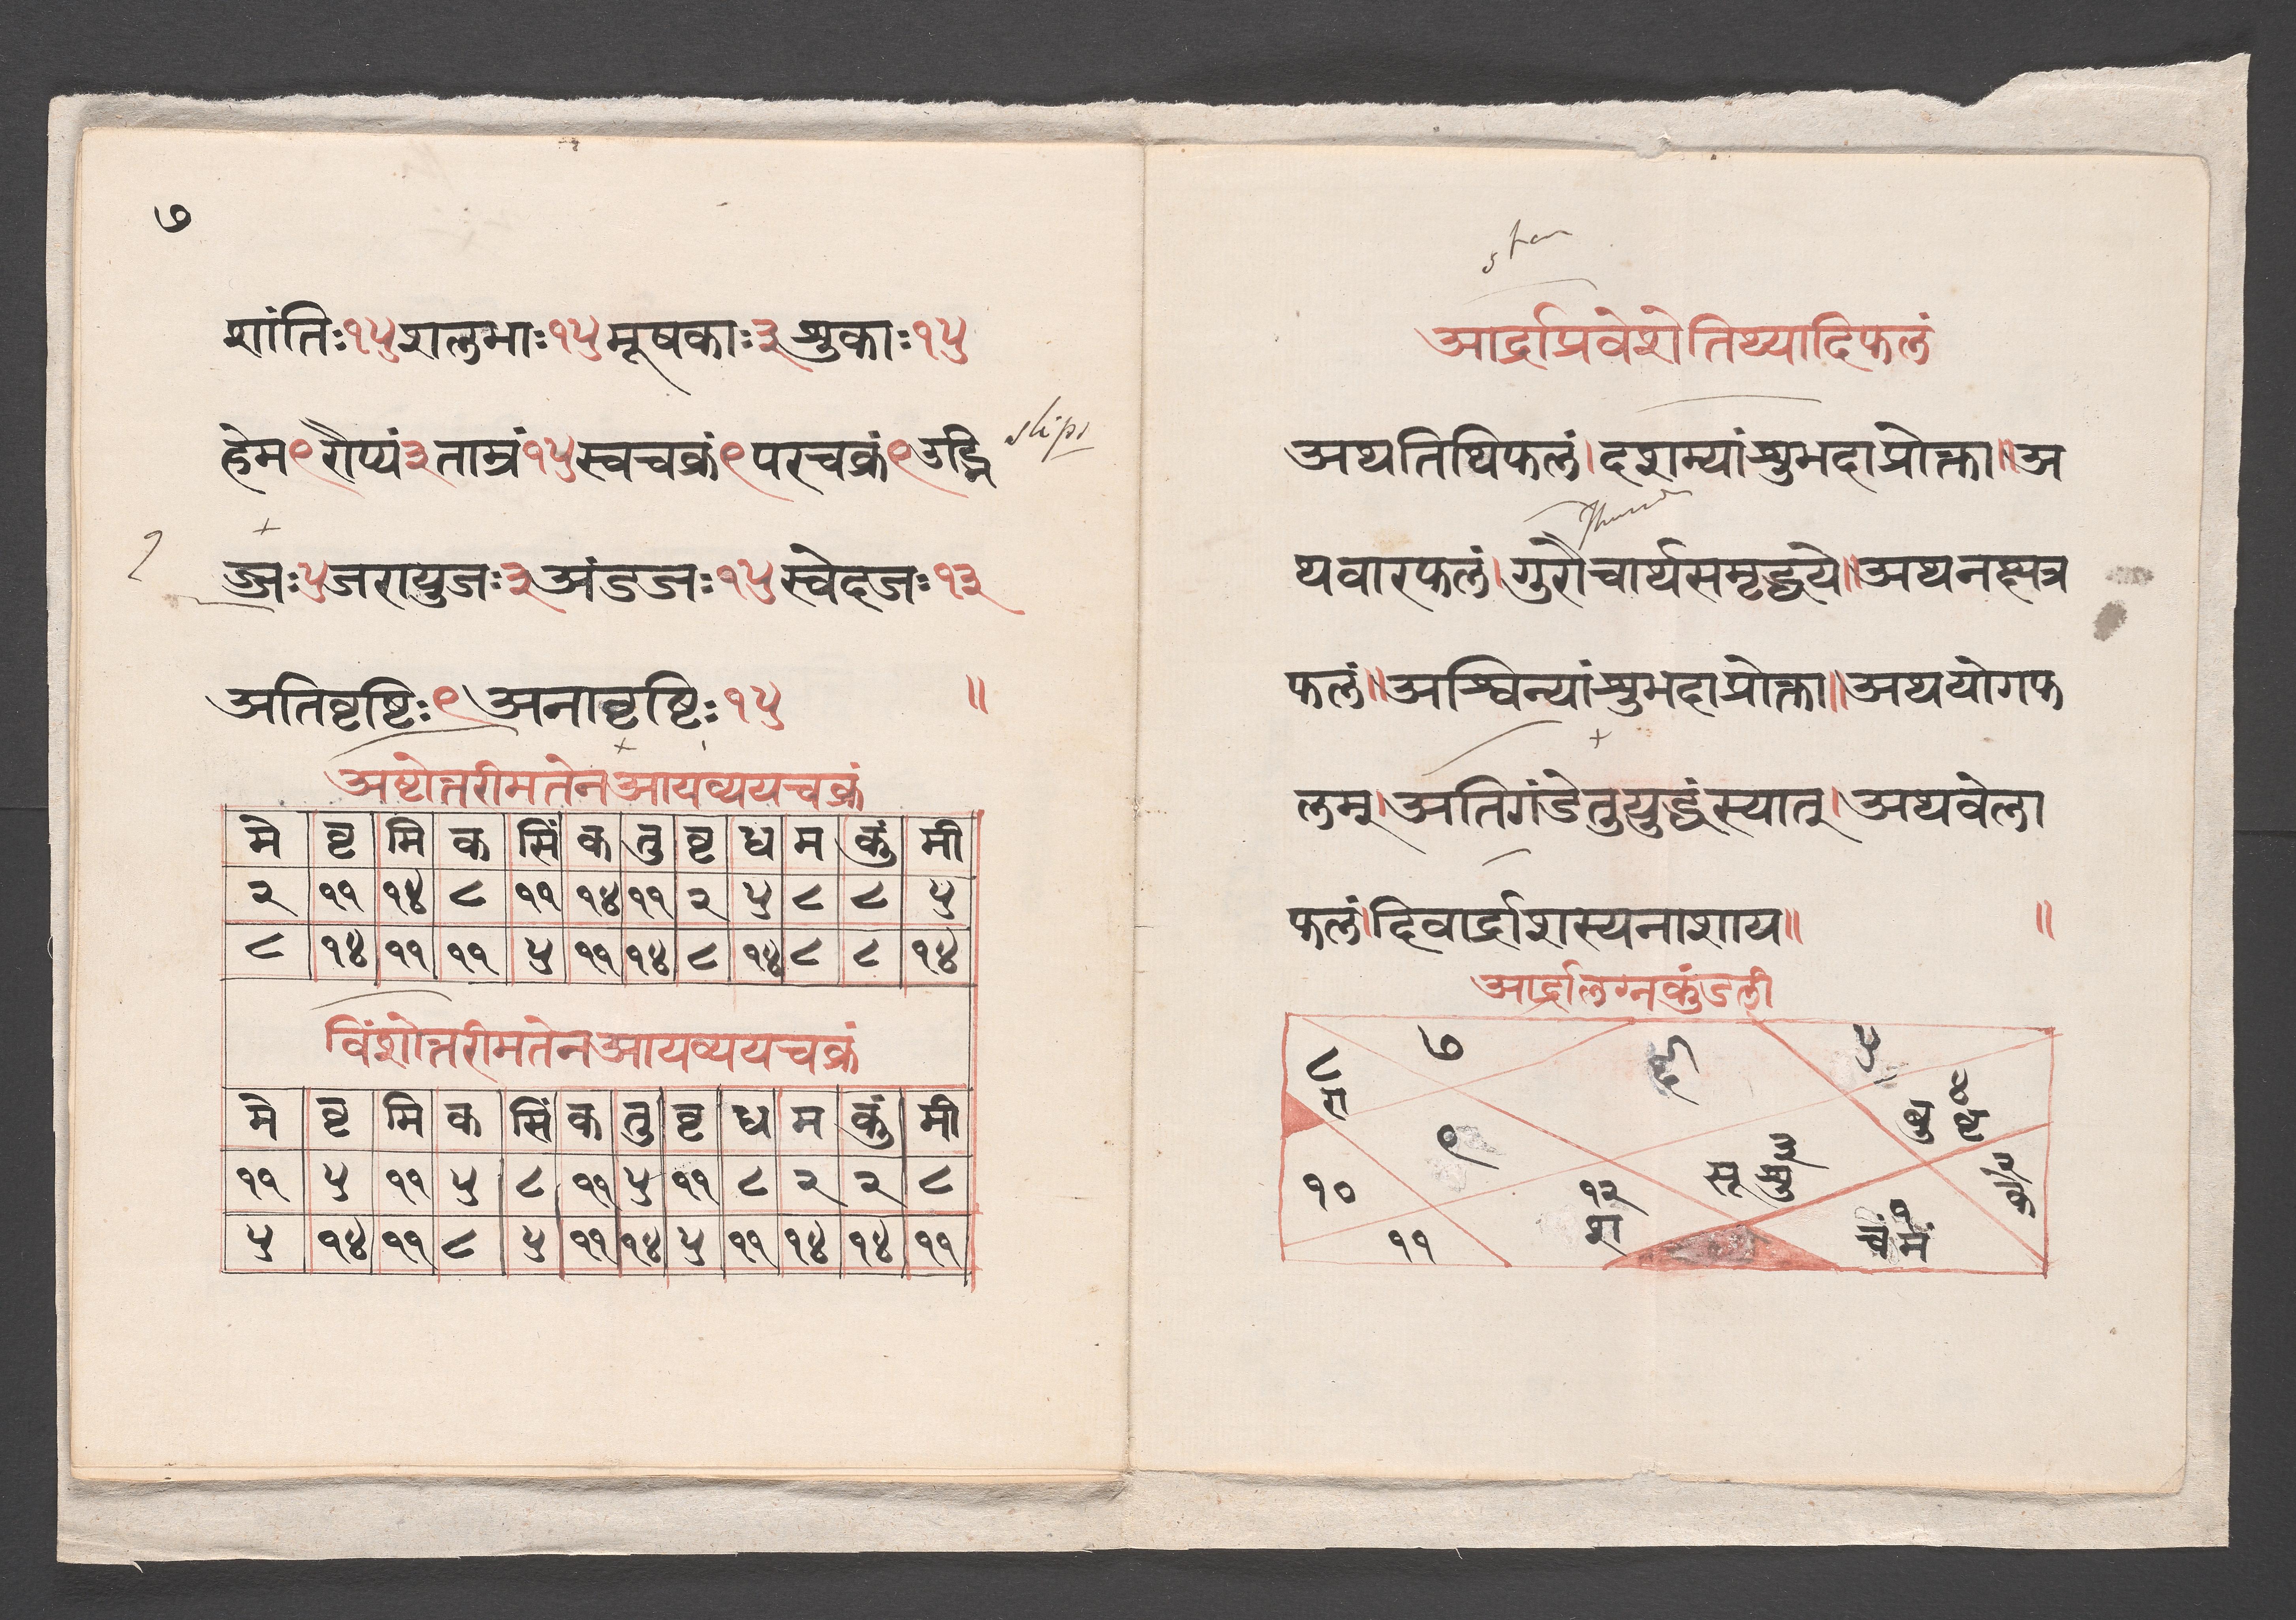 ७
शांतिः १५ शलभाः १५ मूषकाः ३ शुकाः १५
हेम ९ रौप्यं ३ ताम्रं १५ स्वचक्रं ९ परचक्रं ९ उद्भि
ज्जः ५ जरायुजः ३ अंडजः १५ स्वेदजः १३
अतिवृष्टिः ९ अनावृष्टिः १५ ॥
अष्टोत्तरीमतेनआयव्ययचक्रं
मे वृ मि क सिं क तु वृ ध म कुं मी
२ ११ १४ ८ ११ १४ ११ २ ५ ८ ८ ५
८ १४ ११ ११ ५ ११ १४ ८ १४ ८ ८ १४
विंशोत्तरीमतेनआयव्ययचक्रं
मे वृ मि क सिं क तु वृ ध म कुं मी
११ ५ ११ ५ ८ ११ ५ ११ ८ २ २ ८
५ १४ ११ ८ ५ ११ १४ ५ ११ १४ १४ ११
आर्द्राप्रवेशेतिथ्यादिफलं
अथतिथिफलं। दशम्यांशुभदाप्रोक्ता॥ अ
थवारफलं। गुरौचार्थसमृद्धये॥ अथनक्षत्र
फलं॥ अश्विन्यांशुभदाप्रोक्ता॥ अथयोगफ
लम्। अतिगंडेतुयुद्धंस्यात्। अथवेला
फलं। दिवार्द्राशस्यनाशाय॥ ॥
आर्द्रालग्नकुंडली
८ रा
७
६
५
४ बु बृ
९
सू शु ३
२ के
१०
१२ श
१ चं मं
११